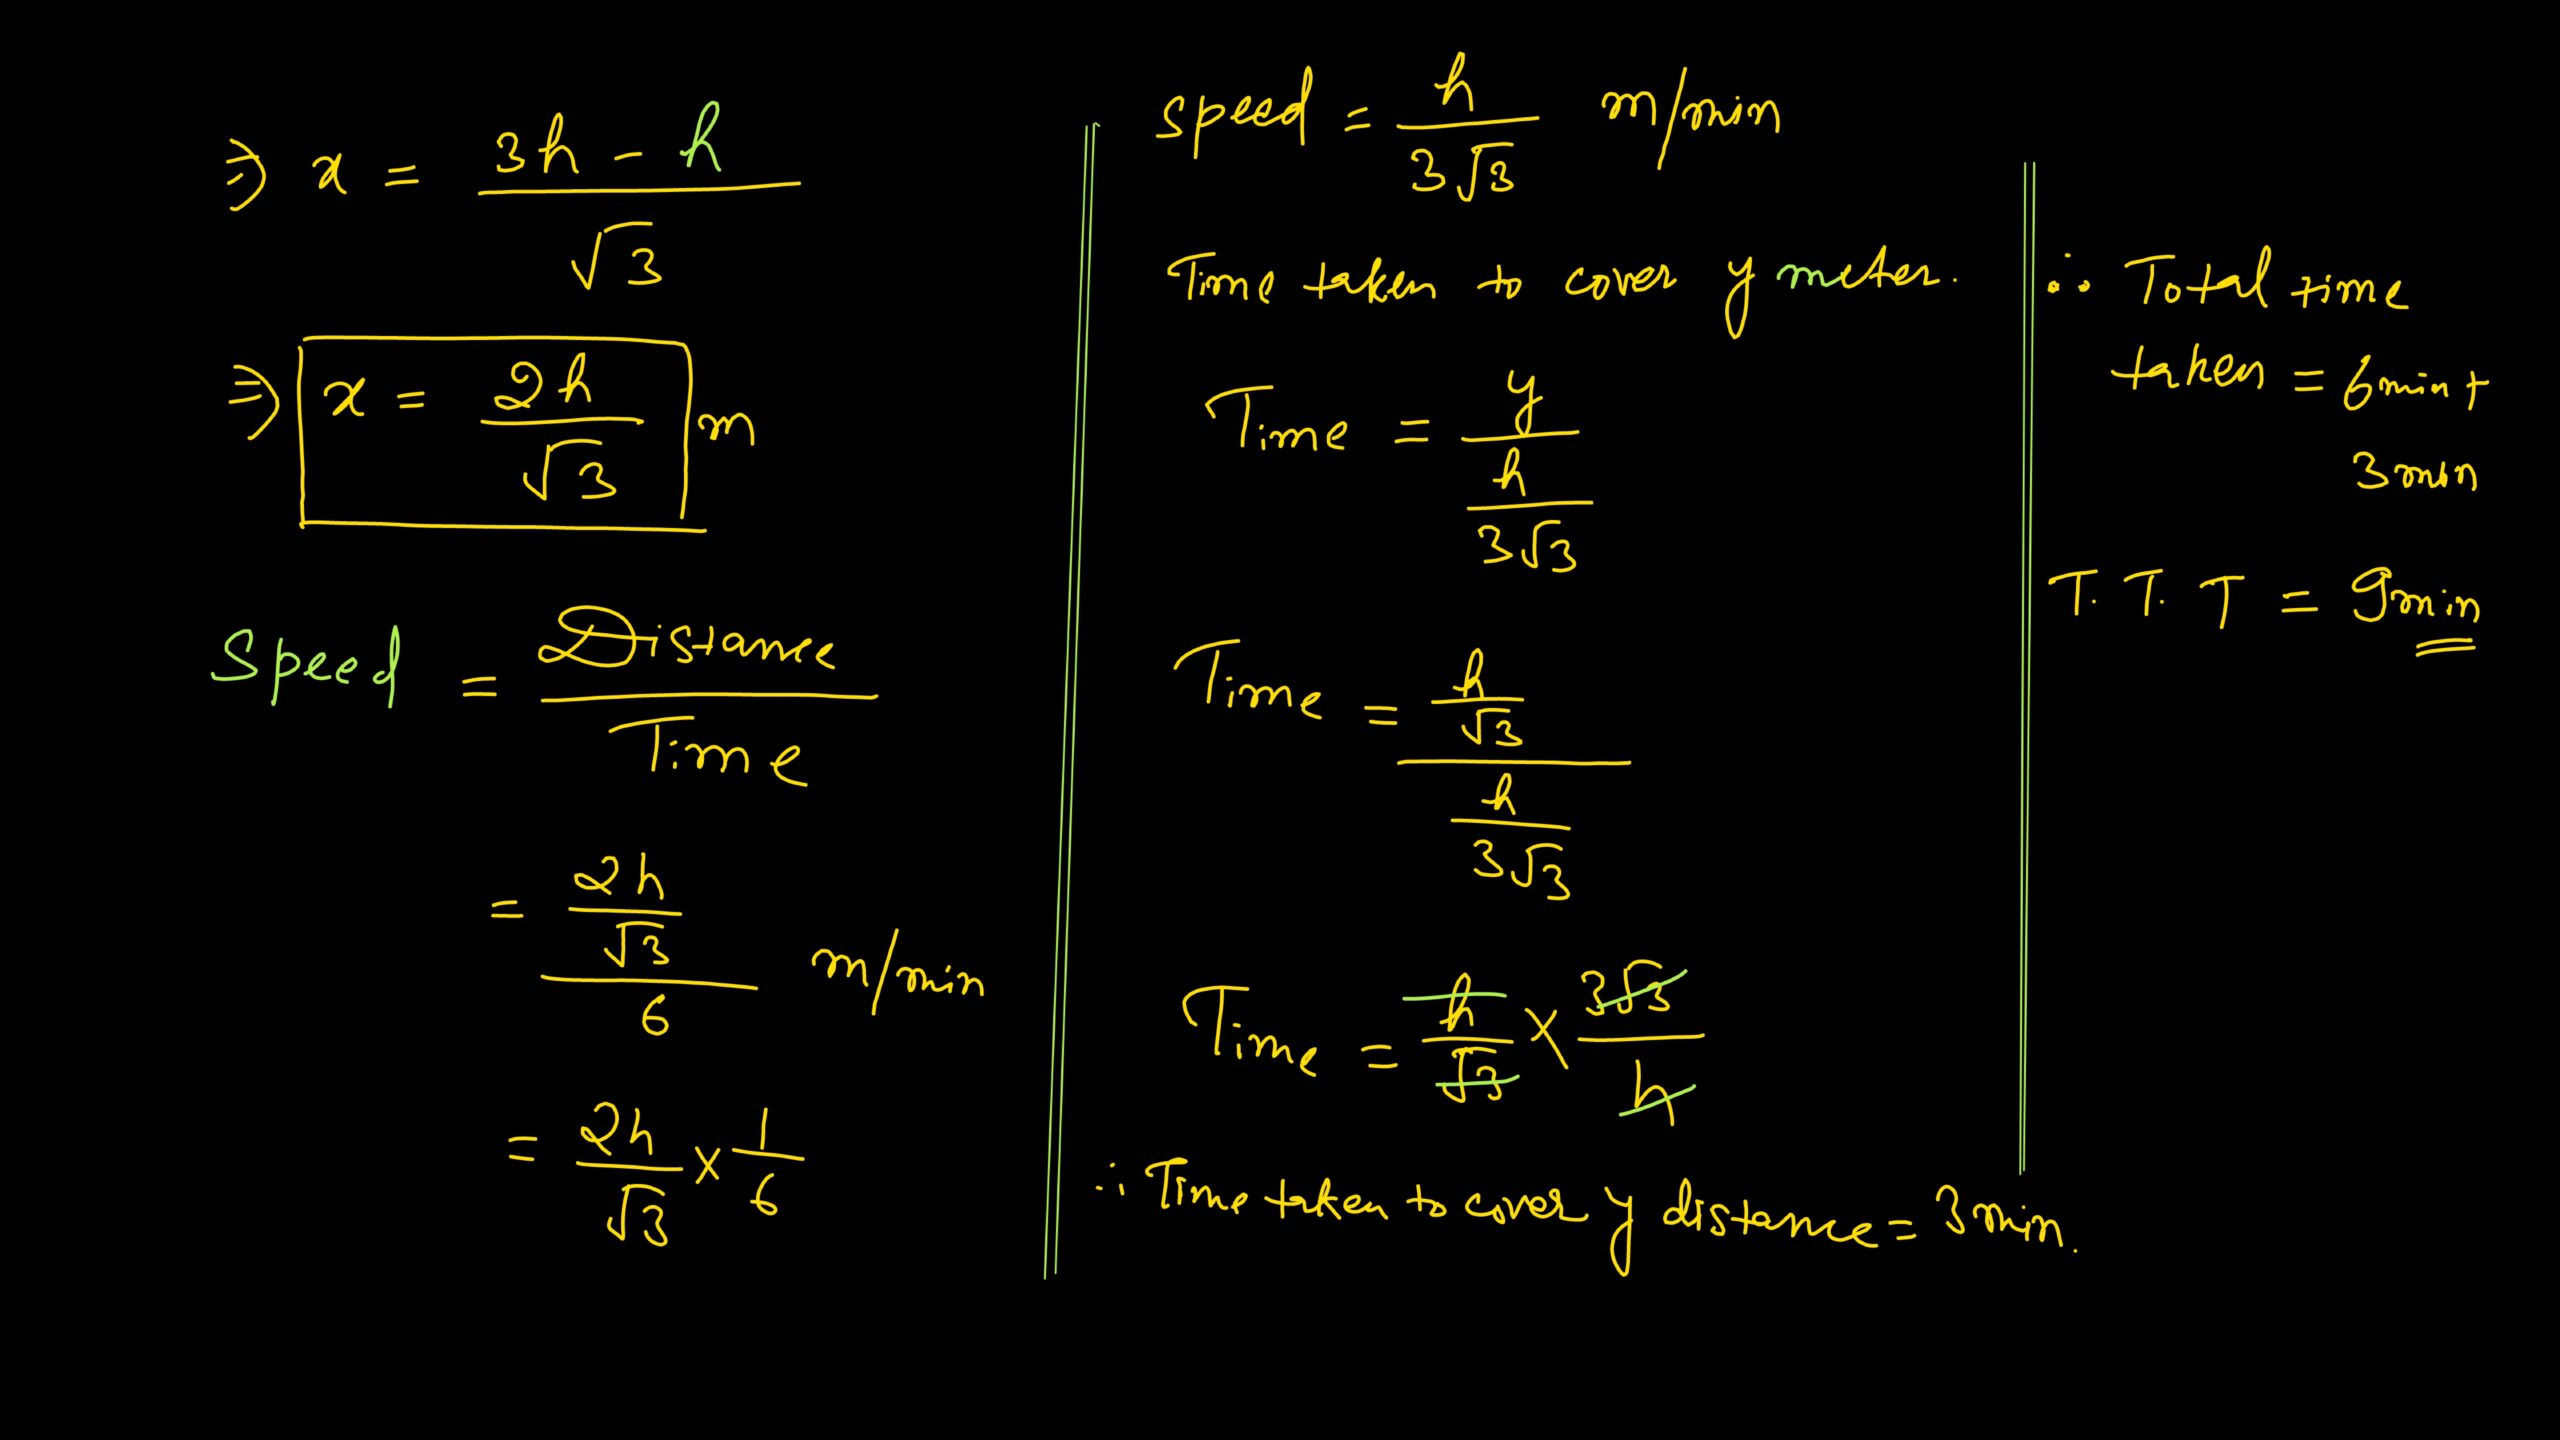 ⇒ x = (3h - h)/√3
⇒ x = 2h/√3 m
Speed = Distance/Time
= (2h/√3)/6 m/min
= 2h/√3 × 1/6
speed = h/(3√3) m/min
Time taken to cover y meter.
Time = y/(h/(3√3))
Time = (h/√3)/(h/(3√3))
Time = h/√3 × 3√3/h
∴ Time taken to cover y distance = 3min.
∴ Total time
taken = 6min +
3min
T. T. T = 9min